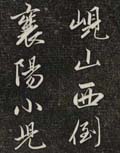 峴山西倒
襄陽小兒